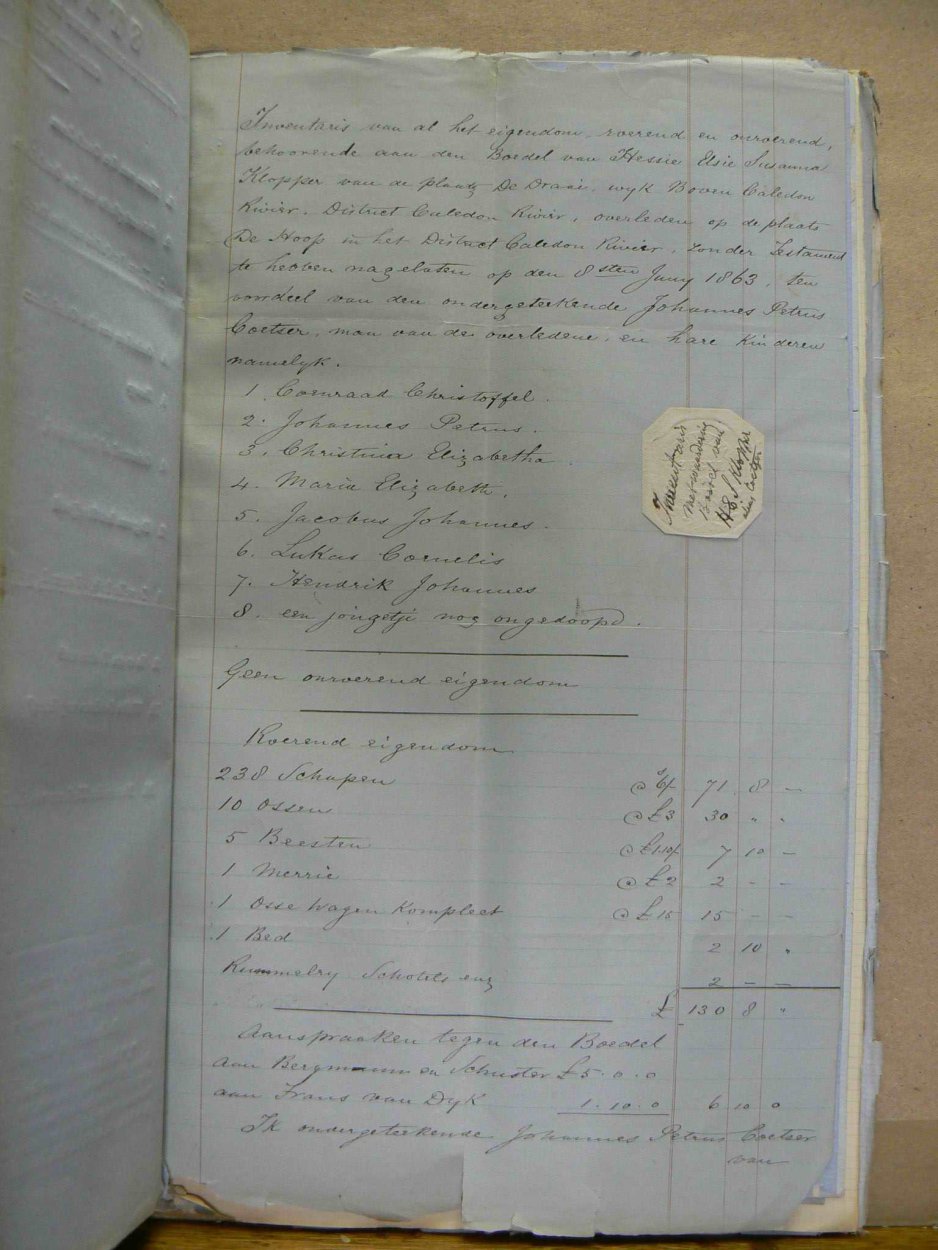 Inventaris van al het eigendom, roerend en onroerend,
behoorende aan den Boedel van Hessie Elsie Susanna
Klopper van de plaats De Draai, wyk Boven Caledon
Rivier, District Caledon Rivier, overleden op de plaats
De Hoop in het District Caledon Rivier, zonder Testament
te hebben nagelaten op den 8sten Juny 1863, ten
voordeel van den ondergeteekende Johannes Petrus
Coetser, man van de overledene, en hare Kinderen
namelyk.
1. Coenraad Christoffel.
2. Johannes Petrus.
3. Christina Elizabetha
4. Maria Elizabeth.
5. Jacobus Johannes.
6. Lukas Cornelis
7. Hendrik Johannes
8. een jongetje nog ongedoopd.
Inventaris
met waardering
Boedel van
H E S Klopper
Coetser
Geen onroerend eigendom
Roerend eigendom
238 Schapen @ 6/ 71 8 –
10 Ossen @ £3 30 " "
5 Beesten @ £1.10/ 7 10 –
1 Merrie @ £2 2 – –
1 Osse Wagen Kompleet @ £15 15 – –
1 Bed 2 10 "
Rummelry Schotels enz 2 – –
£ 130 8 "
Aanspraaken tegen den Boedel
aan Bergmann en Schuster £5.0.0
aan Frans van Dyk 1.10.0 6 10 0
Ik ondergeteekende Johannes Petrus Coetser
van